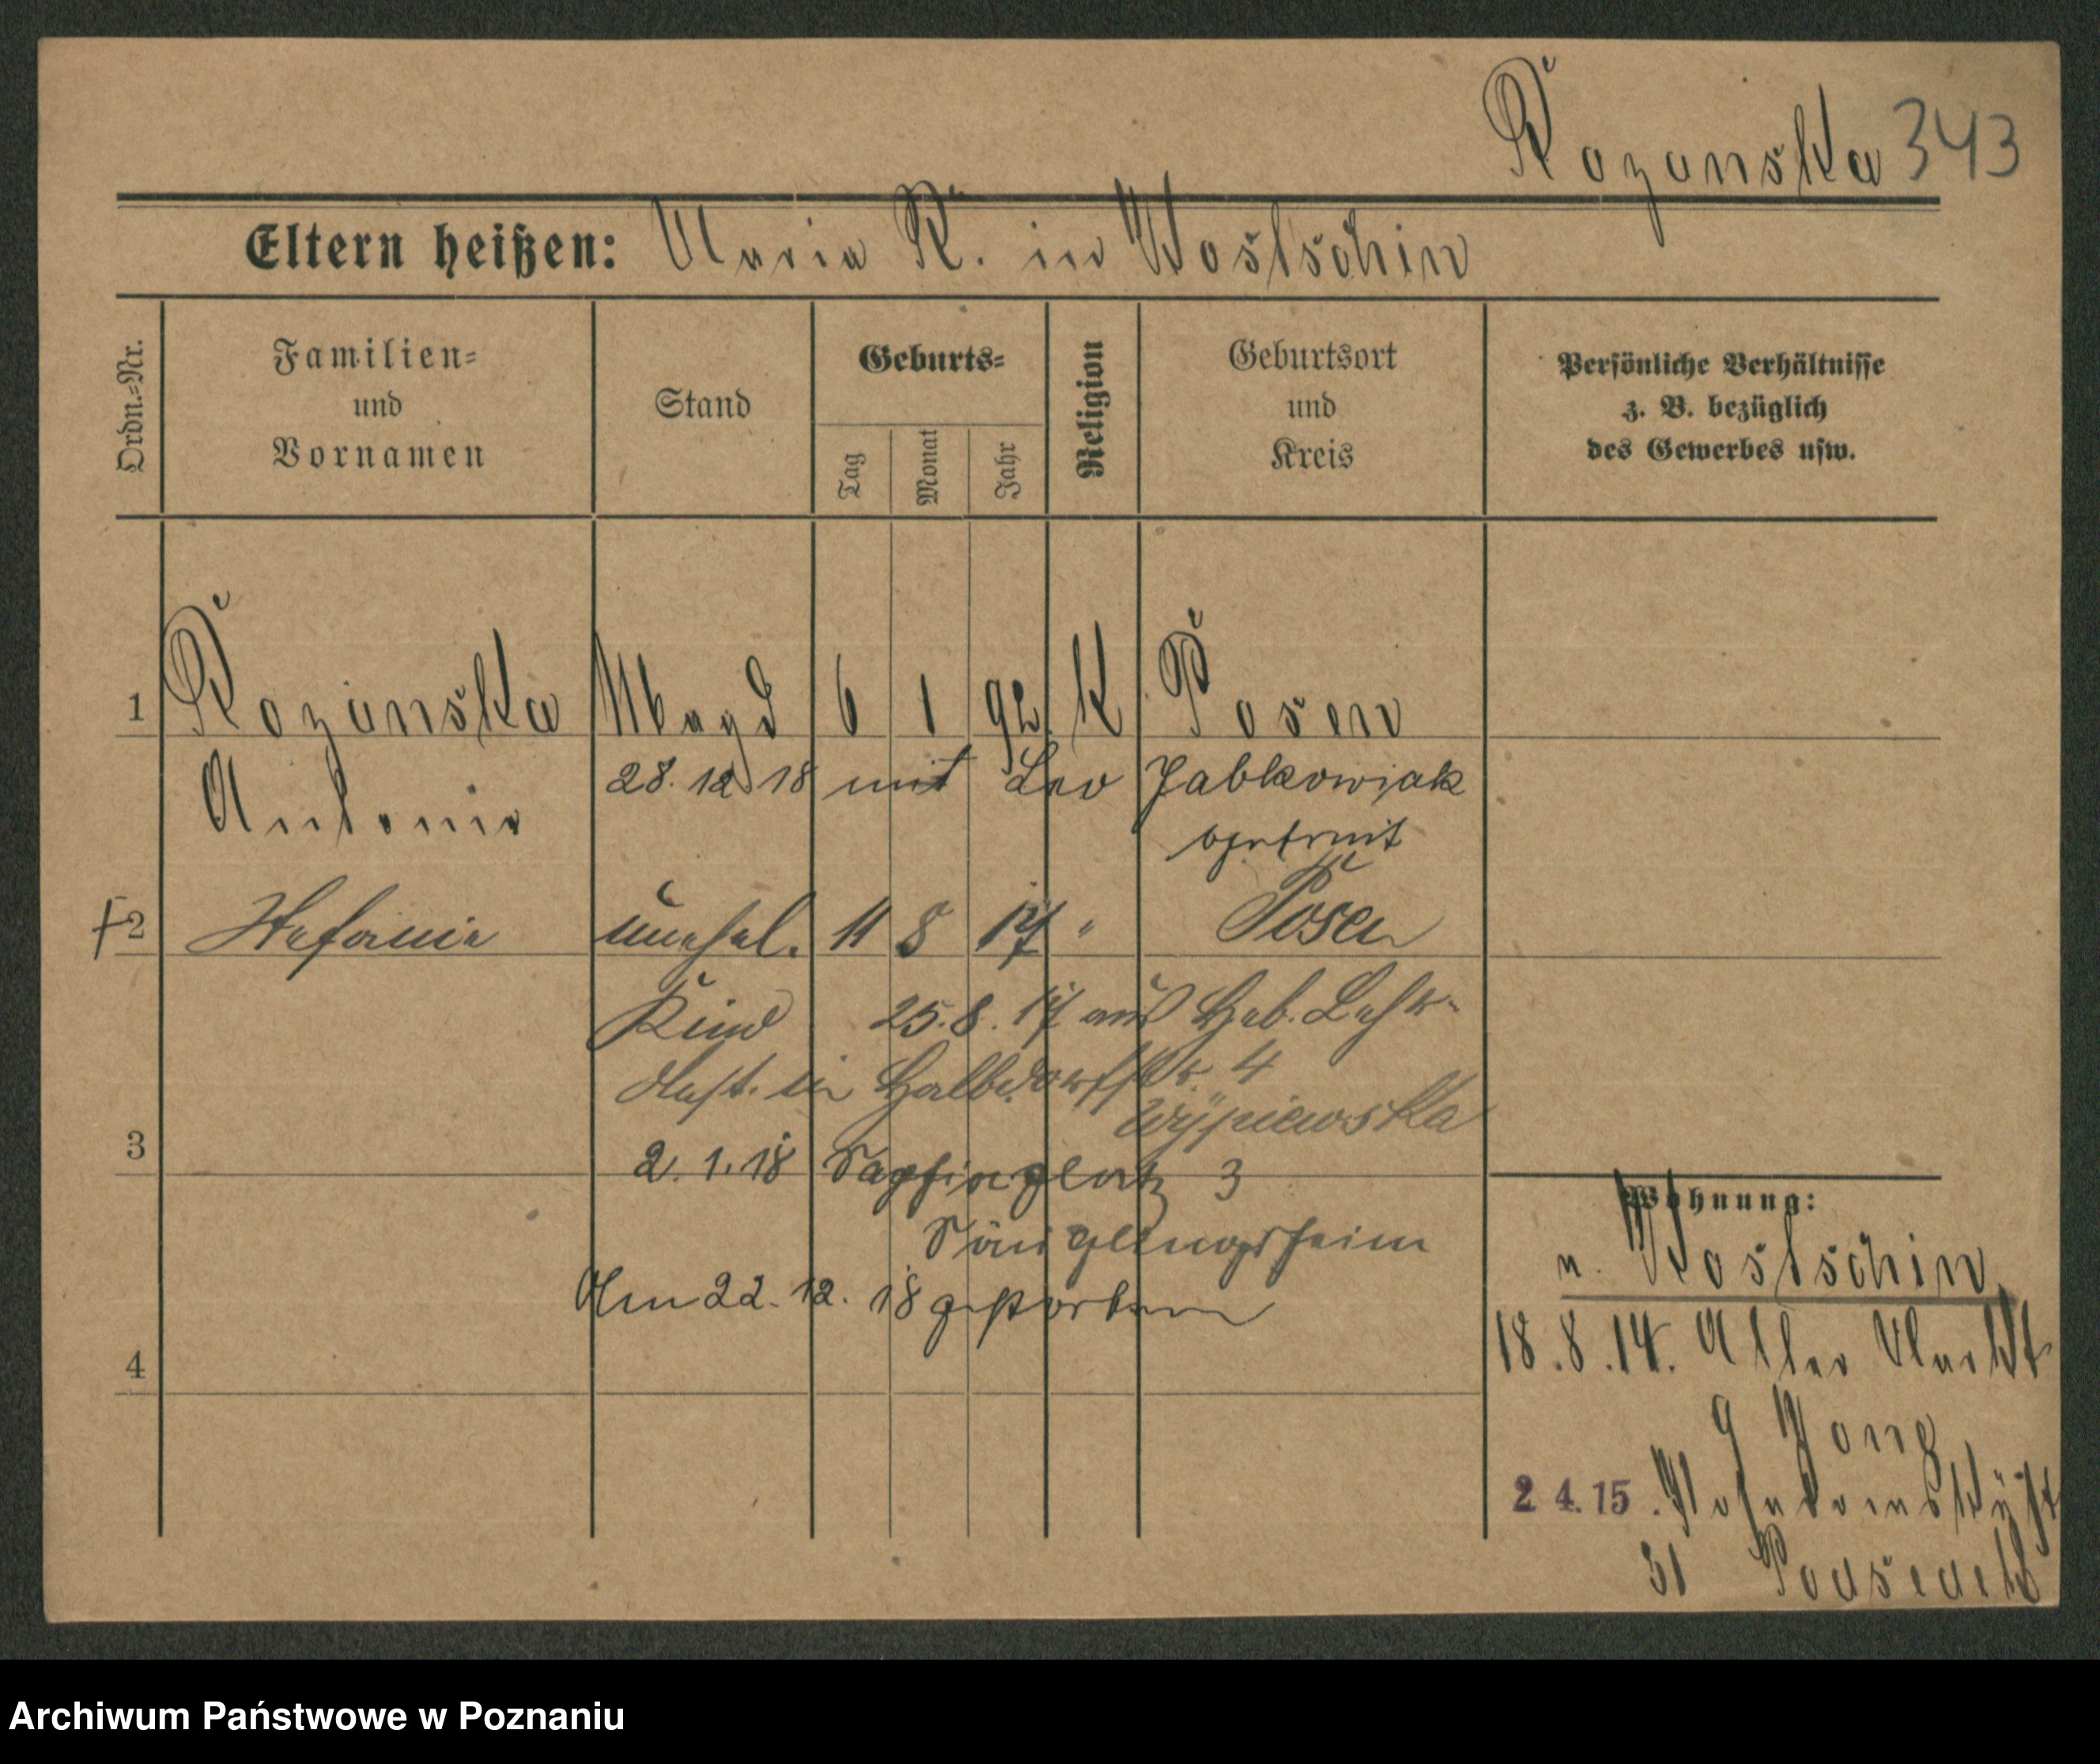 Rozanska 343
Eltern heißen: Maria R. in Wostschin
Ordn.=Nr.
Familien=
und
Vornamen
Stand
Geburts=
Tag
Monat
Jahr
Religion
Geburtsort
und
Kreis
Persönliche Verhältnisse
z. B. bezüglich
des Gewerbes usw.
1 Rozanska Magd 6 1 92 K Posen
28. 12 18 mit Leo Jabkowiak
Antonie
getraut
†2 Stefanie unehel. 11 8 17 " Posen
Kind 25.8.17 aus Heb. Lehr-
Anst. in Halbdorfstr. 4
Wypiewska
3
2. 1. 18 Sapfiehplatz 3
Säuglingsheim
Am 22. 12. 18 gestorben
4
Wohnung:
n. Wostschin
18.8.14. Alter Markt
9 Jong
2 4. 15.
31
Archiwum Państwowe w Poznaniu